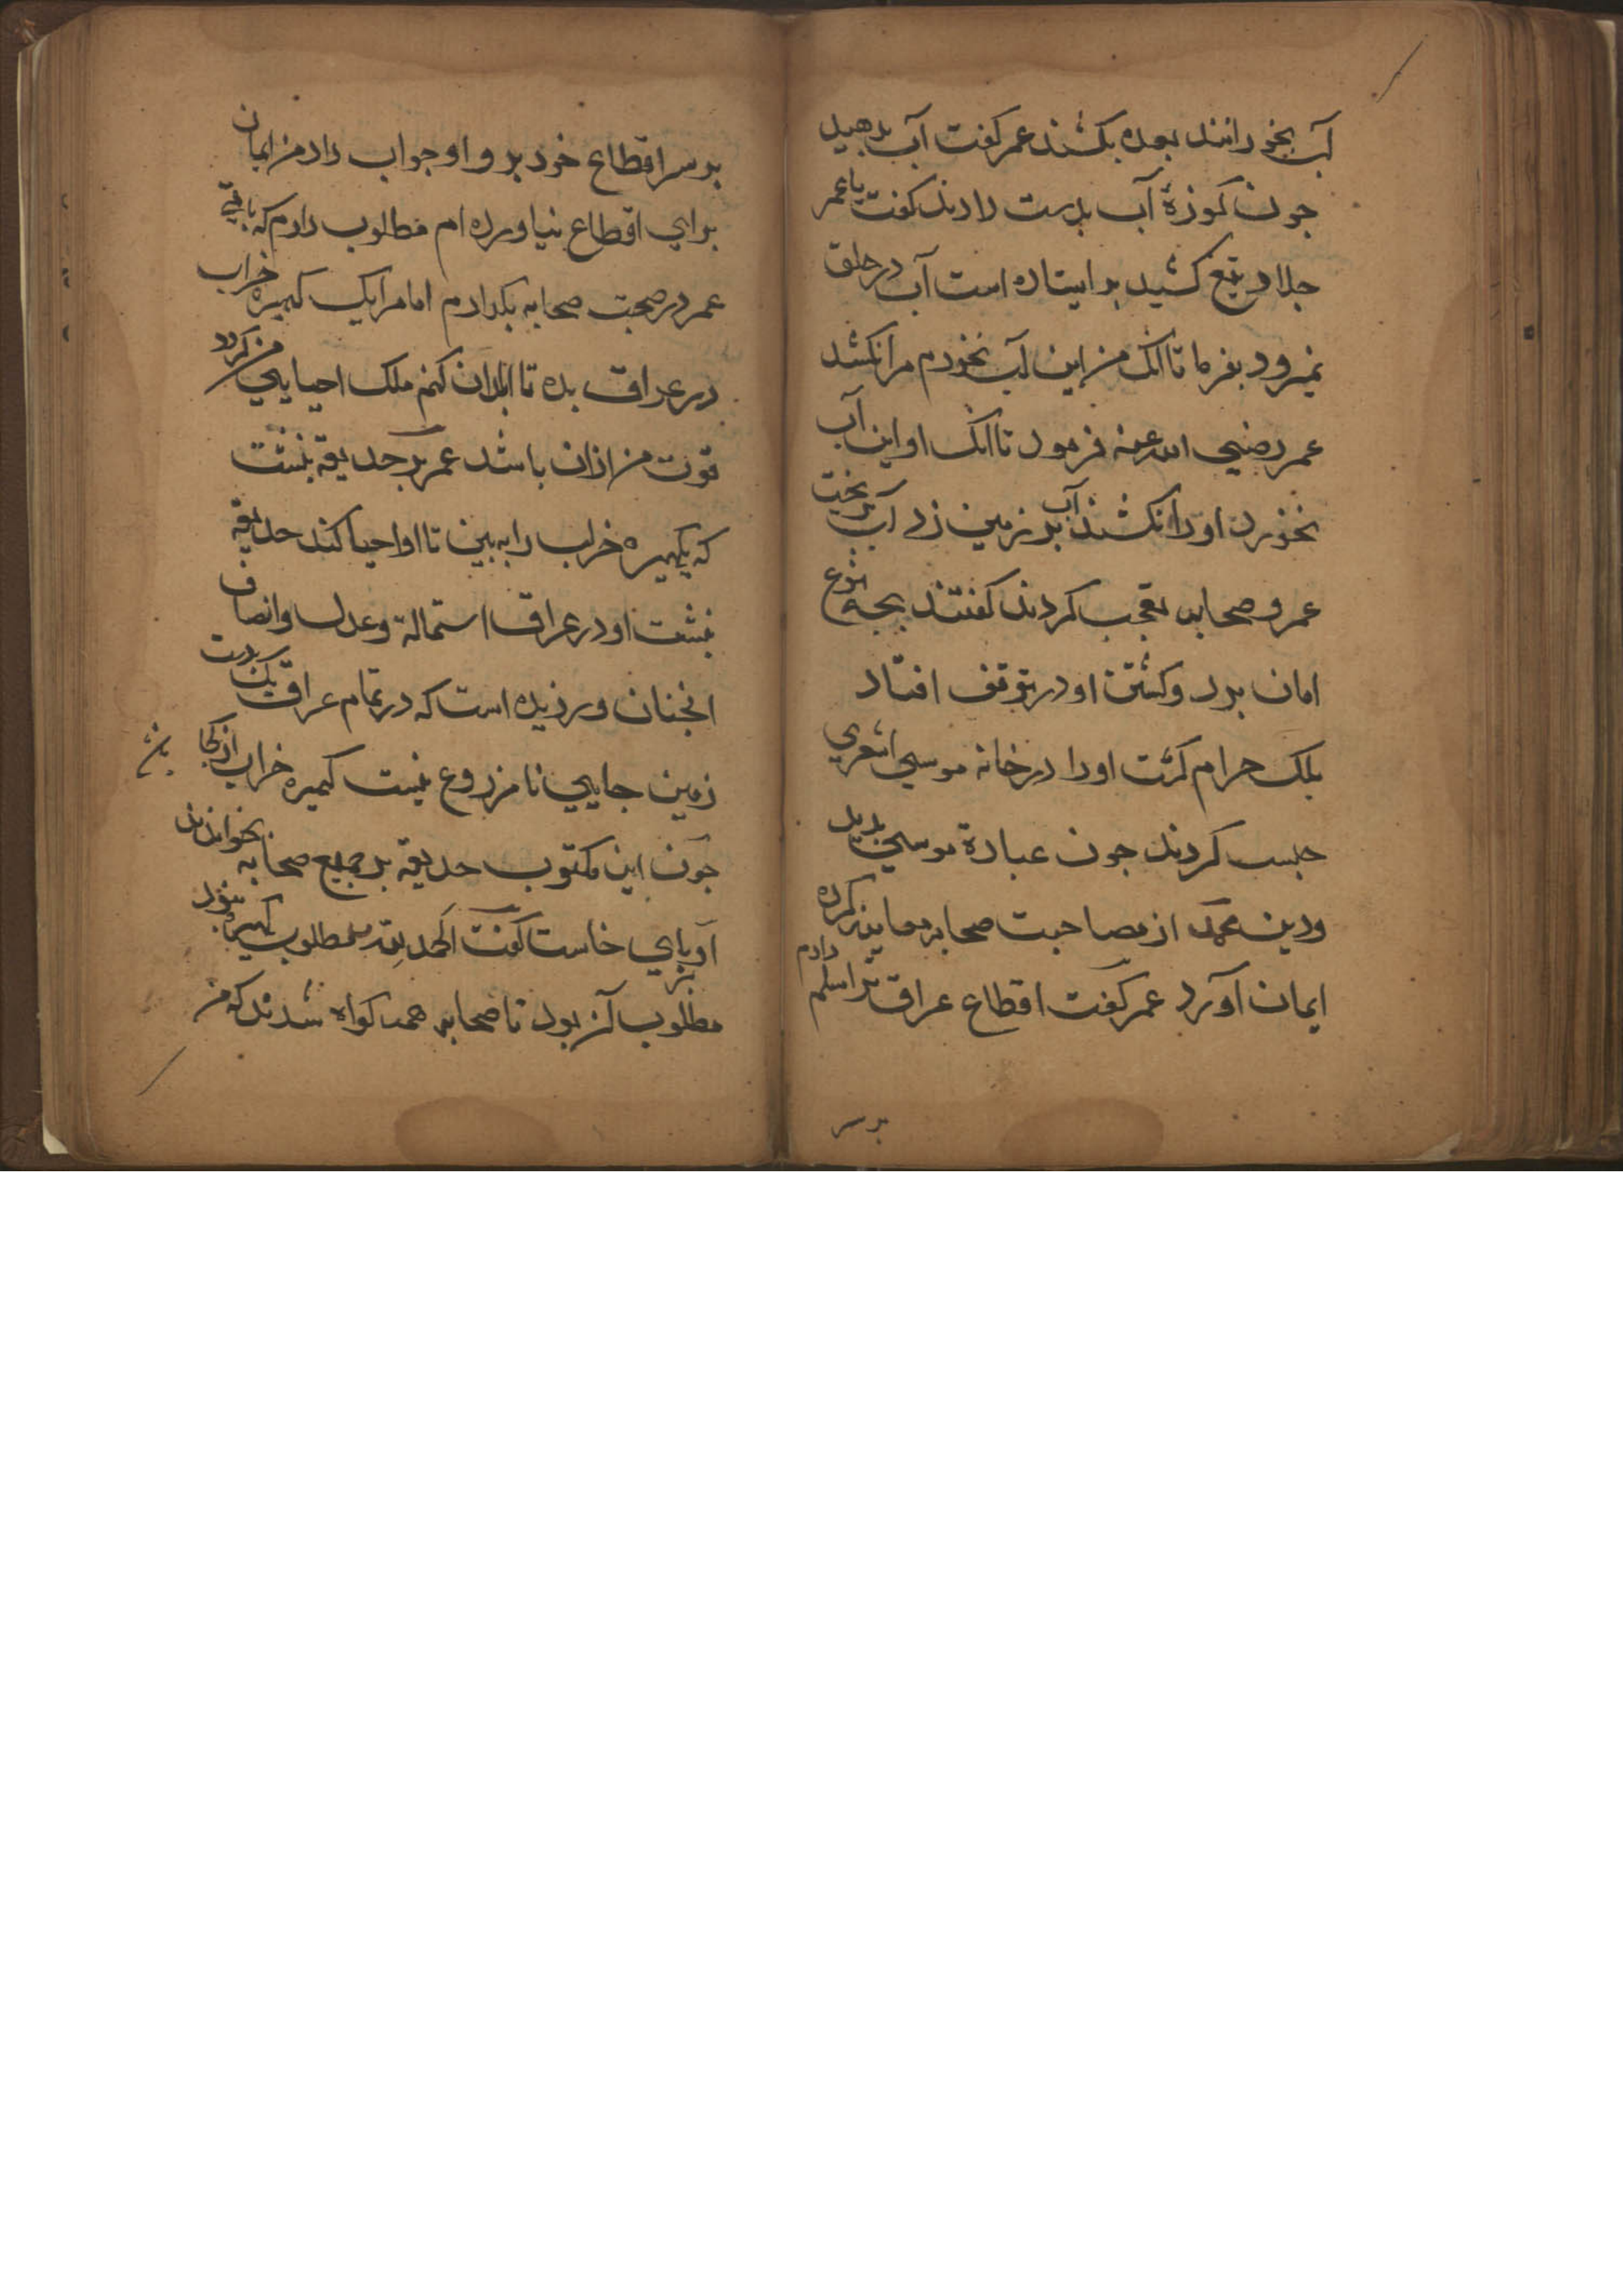 آب بخورانند بعده بکشند عمر کفت آب بدهید
جون کوزهٔ آب بدست دادند کفت یا عمر
جلاد تیغ کشید بر ایستاده است آب در حلق
نمیرود بفرما تا انک من این آب نخورم مرا نکشند
عمر رضي الله عنه فرمود تا انک او این آب
نخورد او را نکشند آب بر زمین زد آب بریخت
عمر و صحابه تعجب کردند کفتند بچه نوع
امان برد و کشتن او در توقف افتاد
بلک حرام کشت او را در خانه موسي اشعري
حبس کردند جون عبادة موسي بدید
و دین محمد از مصاحبت صحابه معاینه کرده
ایمان آورد عمر کفت اقطاع عراق ترا مسلم دارم
بر سر
بر سر اقطاع خود برو او جواب داد من ایمان
براي اقطاع نیاورده ام مطلوب دارم که باقي
عمر در صحبت صحابه بکذارم اما مرا یک کهیره خراب
در عراق بده تا ابادان کنم ملک احیایي من کردد
قوت من ازان باشد عمر بر حدیقه نبشت
که یکهیره خراب را به بین تا او احیا کند حدیقه
نبشت او در عراق استمالة و عدل و انصاف
انجنان ورزیده است که در تمام عراق یک بدست
زمین جایي نا مزروع نیست کهیره خراب از کجا
جون این مکتوب حدیقه بر جمیع صحابه بخواندند
او بر پاي خاست کفت الحمد لله مطلوب کهیره نبود
مطلوب آن بود تا صحابه همه کواه شدند که من